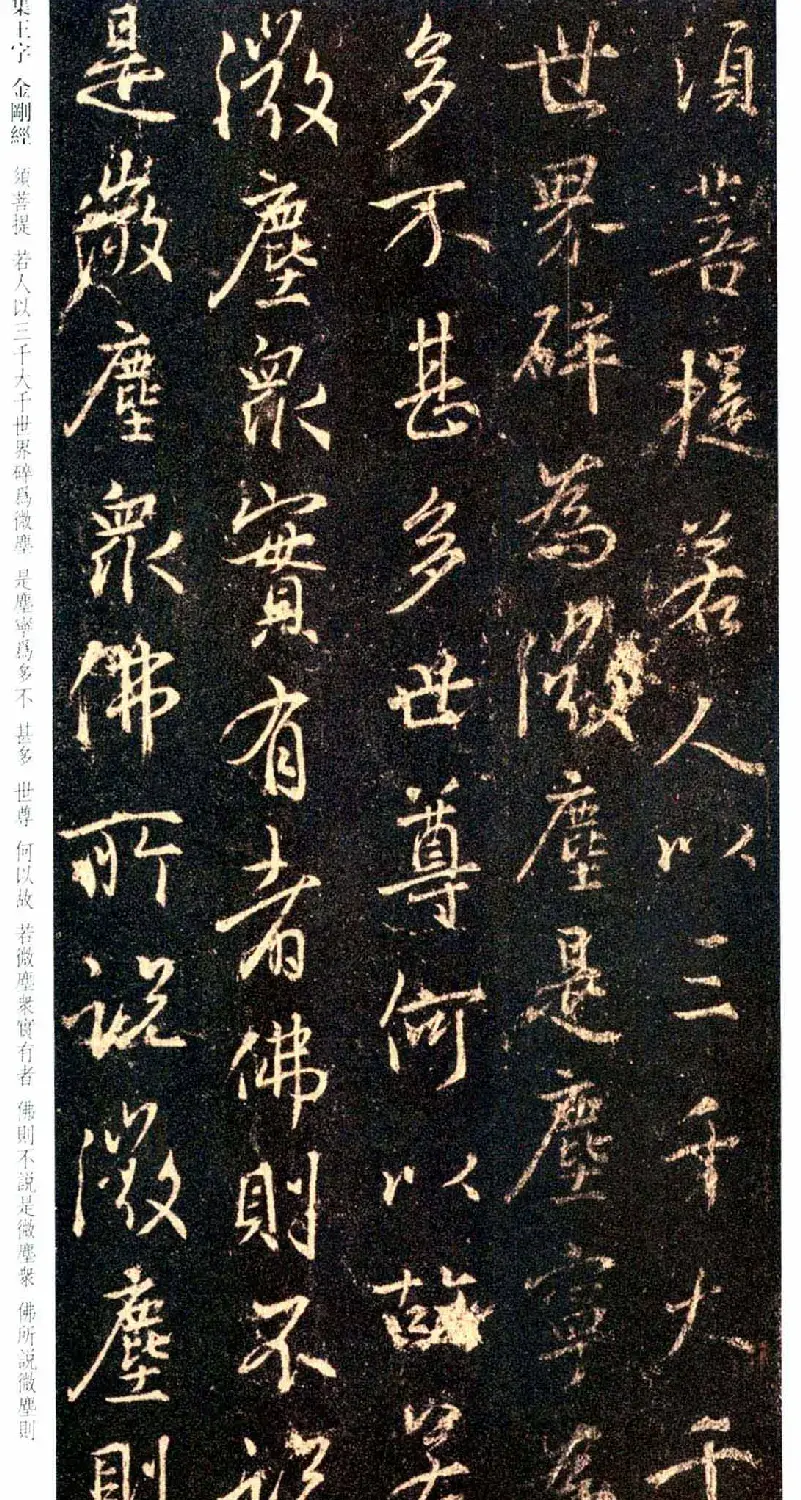 須菩提若人以三千大千
世界碎為微塵是塵寧為
多不甚多世尊何以故若
微塵衆實有者佛則不說
是微塵衆佛所說微塵則
集王字 金剛經 須菩提 若人以三千大千世界碎爲微塵 是塵寧爲多不 甚多 世尊 何以故 若微塵衆實有者 佛則不説是微塵衆 佛所説微塵則